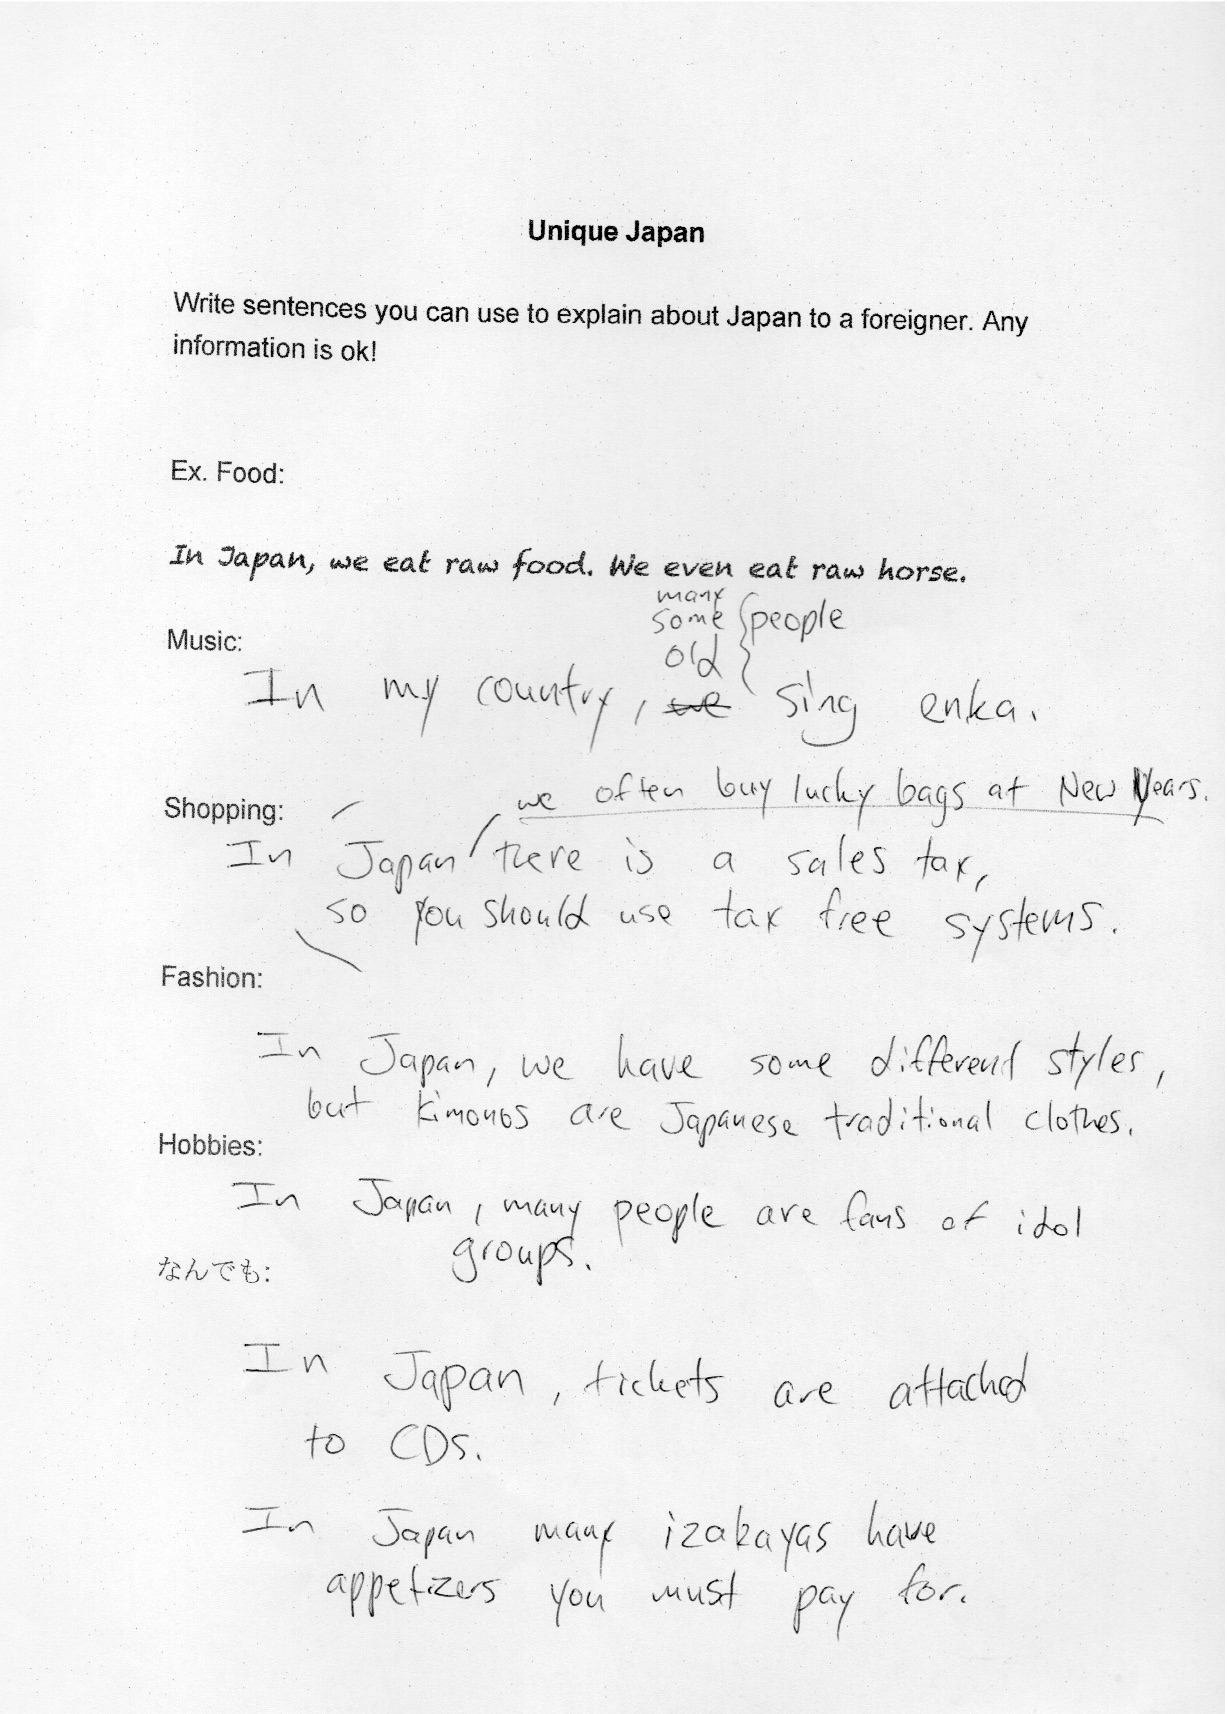 Unique Japan
Write sentences you can use to explain about Japan to a foreigner. Any
information is ok!
Ex. Food:
In Japan, we eat raw food. We even eat raw horse.
many
some people
old
Music:
In my country, we sing enka.
we often buy lucky bags at New Years.
Shopping:
In Japan there is a sales tax,
so you should use tax free systems.
Fashion:
In Japan, we have some different styles,
but kimonos are Japanese traditional clothes.
Hobbies:
In Japan, many people are fans of idol
groups.
なんでも:
In Japan, tickets are attached
to CDs.
In Japan many izakayas have
appetizers you must pay for.